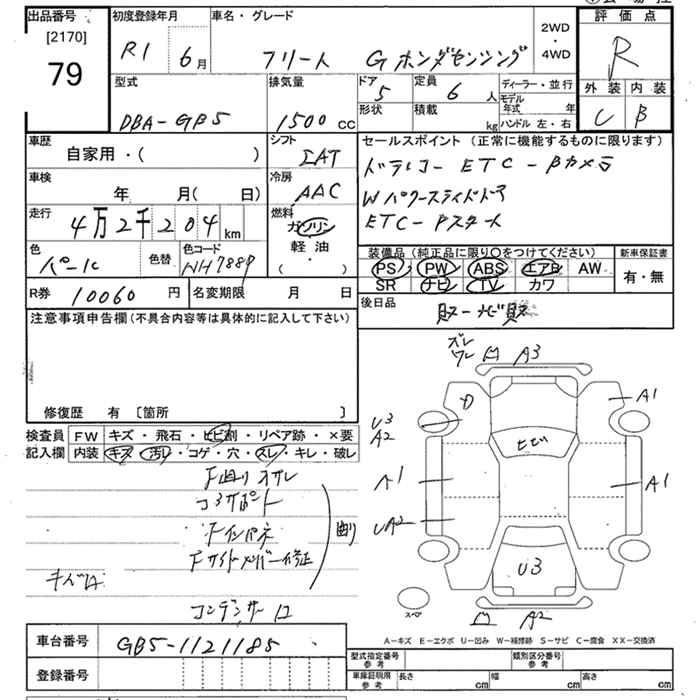 出品番号
[2170]
79
初度登録年月
R1 6月
車名・グレード
フリード Gホンダセンシング
2WD
・
4WD
評価点
R
外装 内装
C B
型式
DBA-GB5
排気量
1500cc
ドア
5
定員
6人
形状
積載
kg
ディーラー・並行
モデル年式 年
ハンドル 左・右
車歴
自家用・( )
シフト
IAT
セールスポイント(正常に機能するものに限ります)
ドラレコー ETC - Bカメラ
Wパワースライドドア
ETC - Pスタート
車検
年 月( 日)
冷房
AAC
走行
4万2千204km
燃料
ガソリン
軽油
( ・ )
色
パール
色替
色コード
NH788P
装備品(純正品に限り○をつけてください)
PS PW ABS エアB AW
SR ナビ TV カワ
新車保証書
有・無
R券
10060円
名変期限 月 日
後日品
取ーナビ取
注意事項申告欄(不具合内容等は具体的に記入して下さい)
修復歴 有 [箇所 ]
検査員
記入欄
FW キズ・飛石・ヒビ割・リペア跡・×要
内装 キズ・汚レ・コゲ・穴・スレ・キレ・破レ
コアサポート
Fインパネ
Fサイドメンバー修正
コンデンサー
ズレ
ワレ
A3
A1
U3
A2
ヒビ
A1
A1
UA2
U3
スペア
A2
A-キズ E-エクボ U-凹み W-補修跡 S-サビ C-腐食 XX-交換済
車台番号
GB5-1121185
登録番号
型式指定番号
参考
類別区分番号
参考
車庫証明用
参考
長さ cm
幅 cm
高さ cm